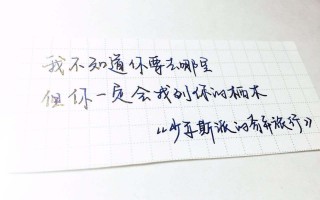 我不知道你要去哪里
但你一定会找到你的栖木
《少年斯派的奇异旅行》